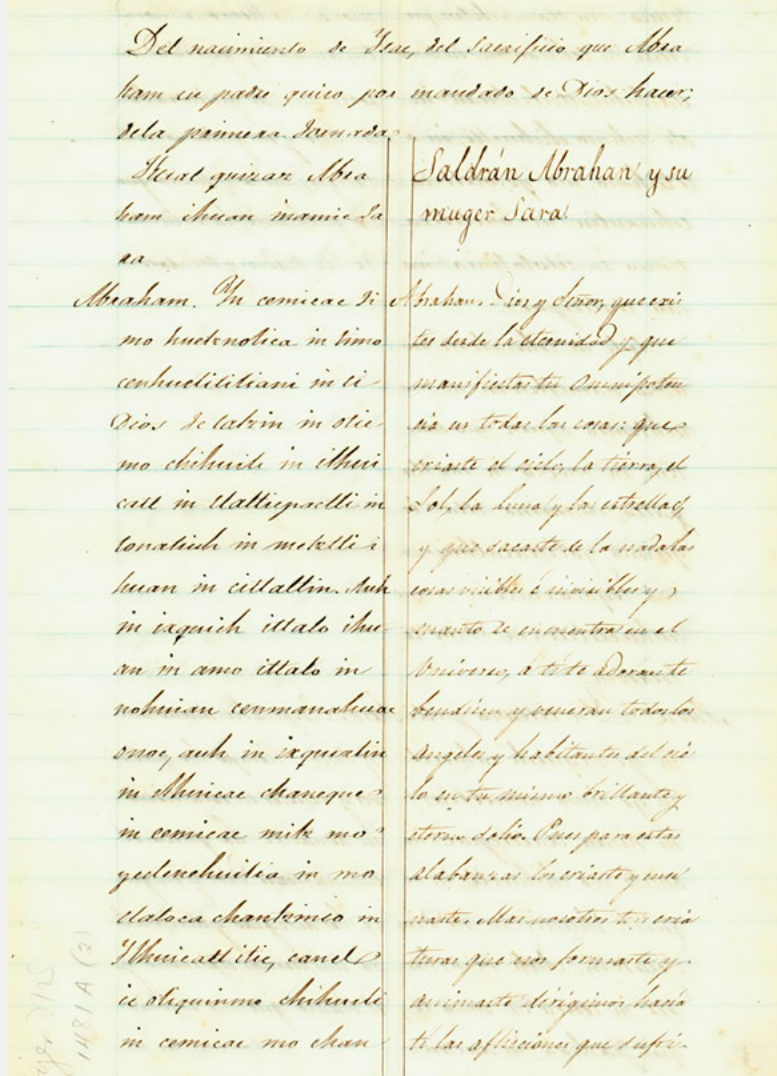 Del nacimiento de Ysac, del sacrificio que Abra
ham su padre quiso por mandado de Dios hacer;
dela primera Jornada
Hual quizaz Abra
ham ihuan inamic Sa
ra
Abraham. Yn cemicac ti
mo huetznotica in timo
cenhuelititiani in ti
Dios te tatzin in otic
mo chihuili in ilhui
catl in tlalticpactli in
tonatiuh in metztli i
huan in citlaltin. Auh
in ixquich ittalo ihu-
an in amo ittalo in
nohuian cenmanahuac
onoc, auh in ixquichtin
in ilhuicac chaneque
in cemicac mitz mo
yectenehuilia in mo
tlatoca chantzinco in
Ylhuicatl itic, canel
ic otiquinmo chihuili
in cemicac mo chan
Saldrán Abrahan y su
muger Sara
Abrahan. Dios y Señor, que exis
tes desde la eternidad y que
manifiestas tu Omnipoten
cia en todas las cosas: que
criaste el cielo, la tierra, el
Sol, la luna y las estrellas,
y que sacaste de la nada las
cosas visibles é invisibles y
cuanto se encuentra en el
Universo, á ti te adoran te
bendicen y veneran todos los
Angeles y habitantes del cie
lo en tu mismo brillante y
eterno solio. Pues para estas
alabanzas los criaste y
Mas nosotros tus cria
turas que nos formaste y
animaste dirigimos hacia
ti las aflicciones que sufri-
1481 A (2)